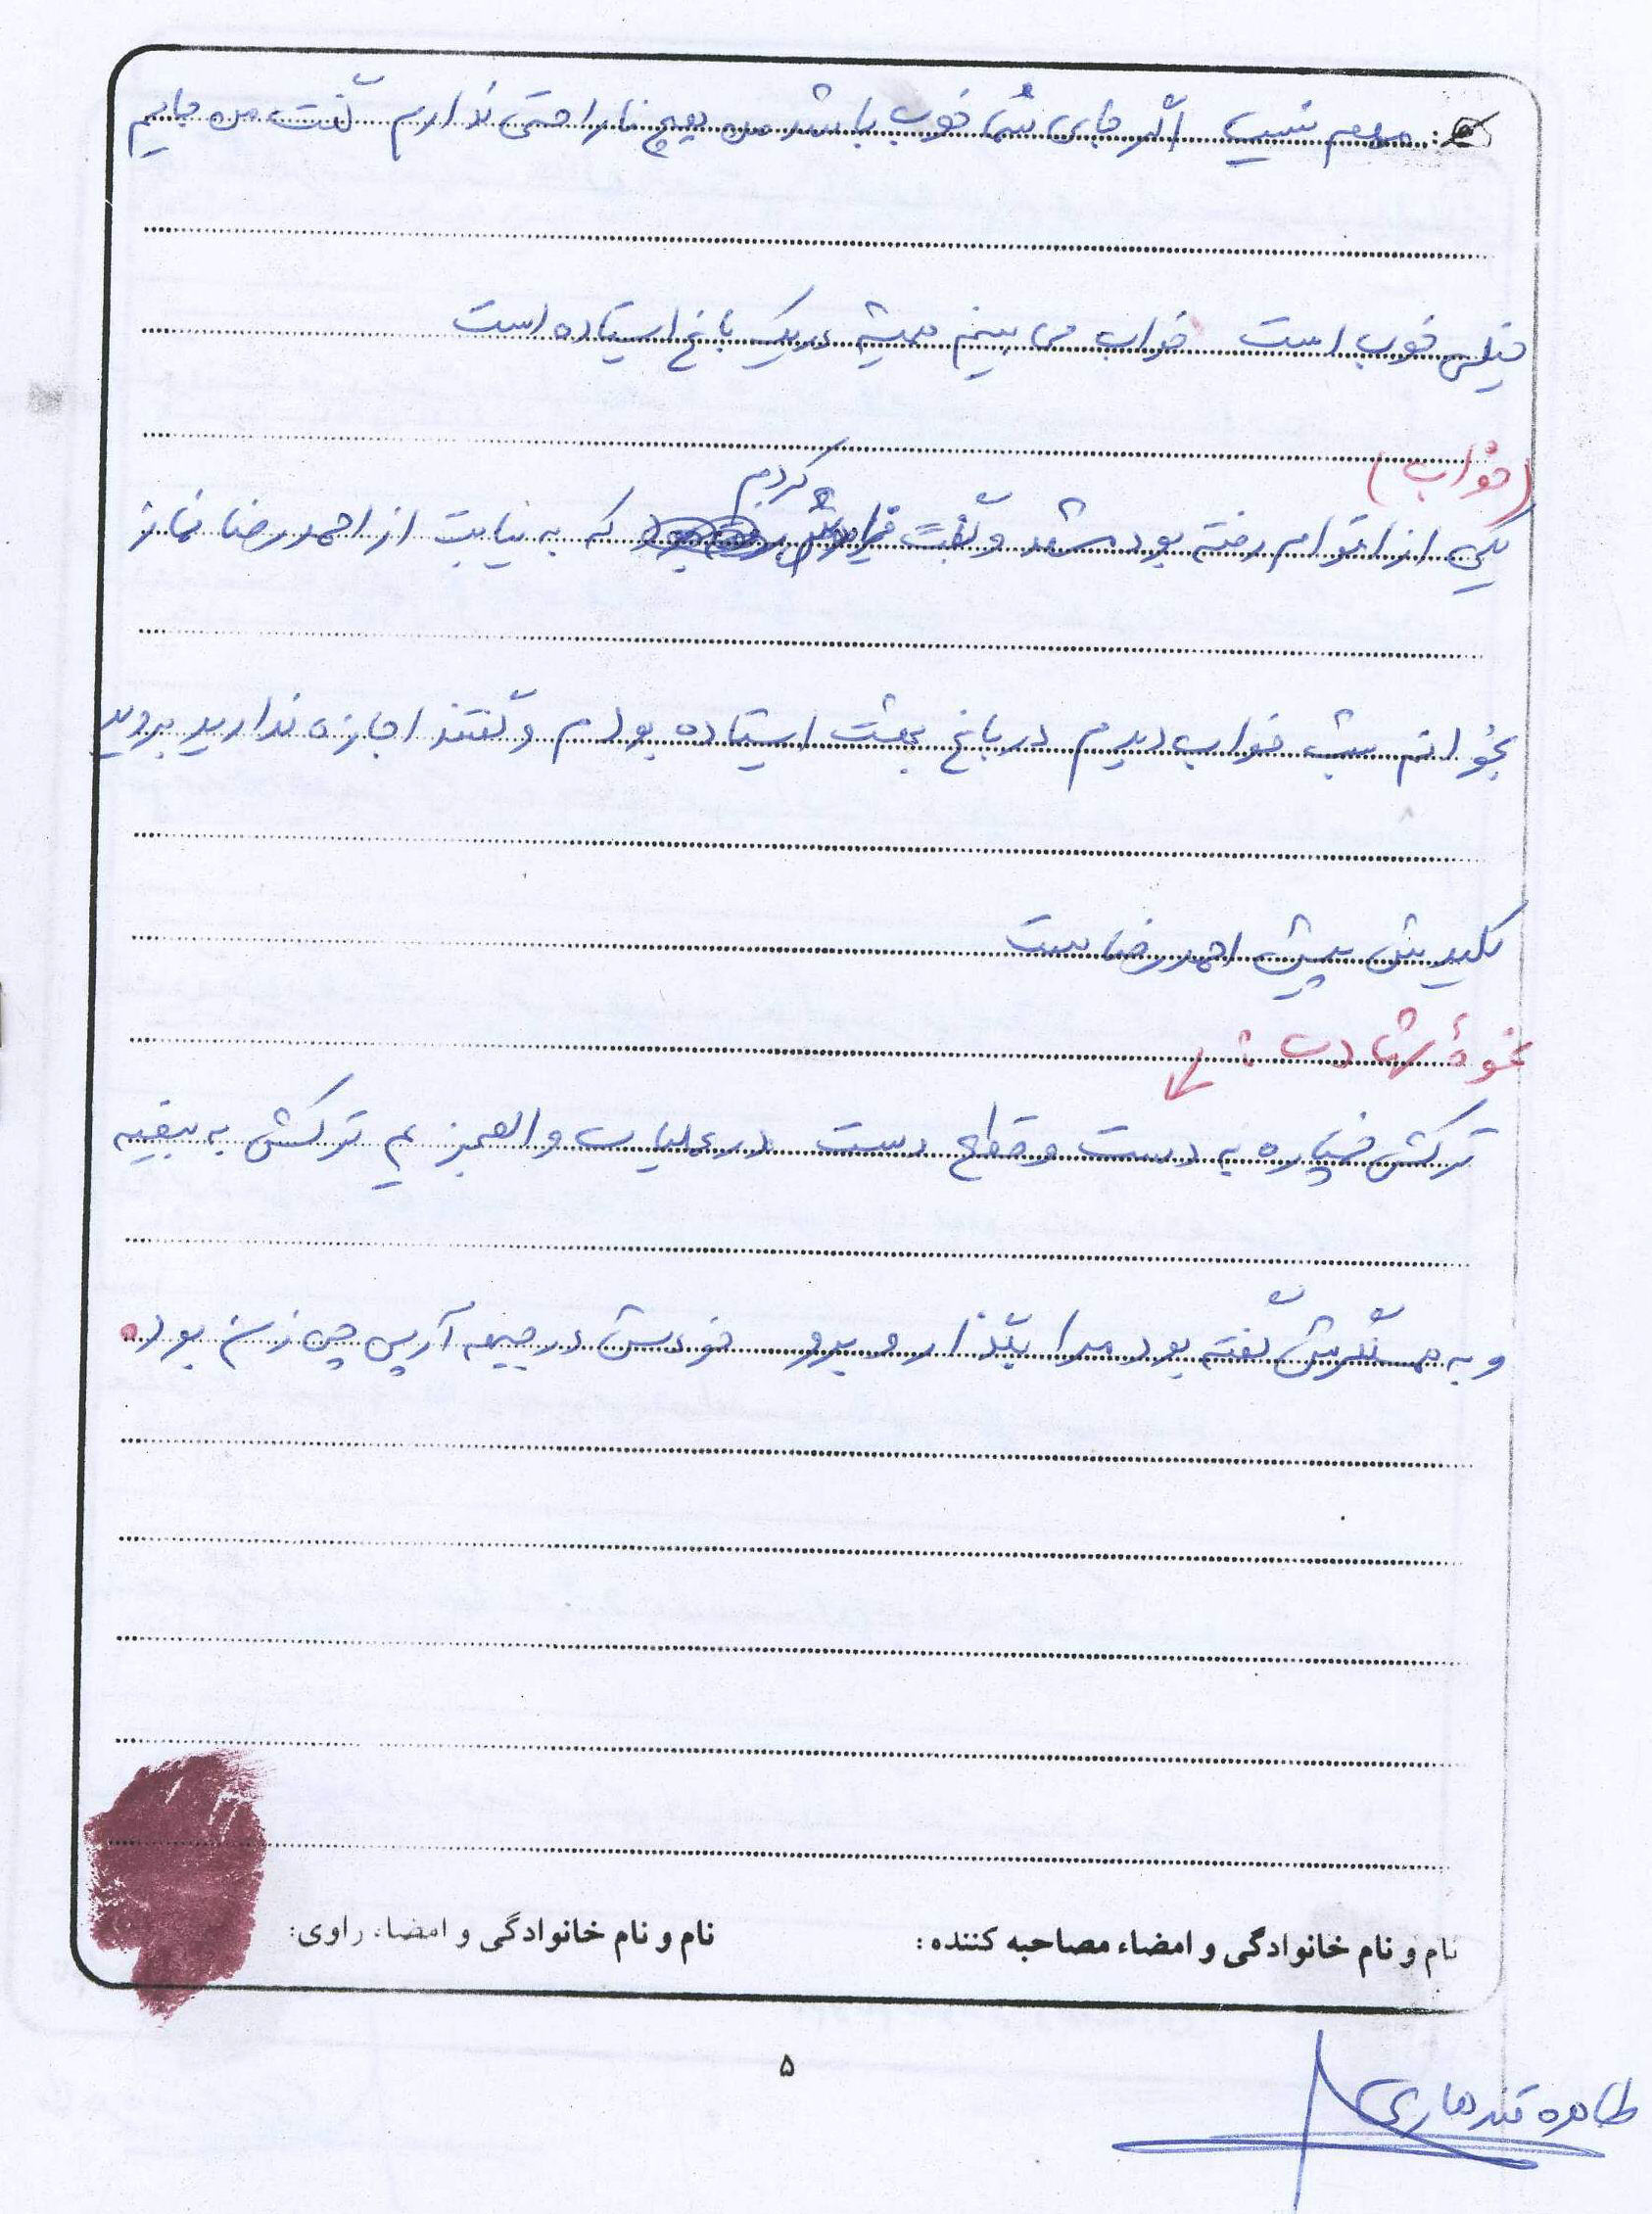 مهم نیست اگر جای شما خوب باشد من هیچ ناراحتی ندارم گفت من جایم
خیلی خوب است خواب می بینم همیشه در یک باغ ایستاده است
(خواب)
کردم
یکی از اقوام رفته بود مشهد و گفت فراموش که به نیابت از احمدرضا نماز
بخوانم شب خواب دیدم در باغ بهشت ایستاده بودم و گفتند اجازه ندارید بروید
کلیدش پیش احمدرضاست
نحوهٔ شهادت:
ترکش خمپاره به دست و قطع دست در عملیات والفجر ترکش به بقیه
و به همسنگرش گفته بود مرا بگذار و برو خودش در جبهه آرپی چی زن بود.
نام و نام خانوادگی و امضاء مصاحبه کننده: نام و نام خانوادگی و امضاء راوی:
۵
طاهره قندهاری